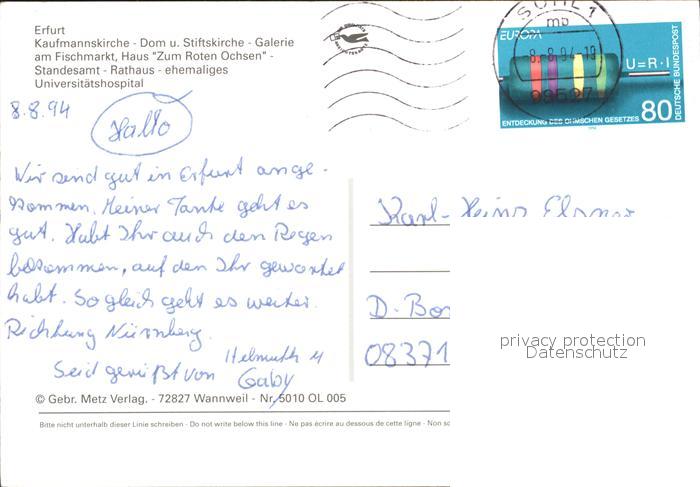 Erfurt
Kaufmannskirche - Dom u. Stiftskirche - Galerie
am Fischmarkt, Haus "Zum Roten Ochsen" -
Standesamt - Rathaus - ehemaliges
Universitätshospital
8.8.94
Hallo
Wir send gut in Erfurt ange-
kommen. Meiner Tante geht es
gut. Habt Ihr auch den Regen
bekommen, auf den Ihr gewartet
habt. So gleich geht es weiter.
Richtung Nürnberg.
Seid gegrüßt von Helmuth u
Gaby
© Gebr. Metz Verlag. - 72827 Wannweil - Nr. 5010 OL 005
Bitte nicht unterhalb dieser Linie schreiben - Do not write below this line - Ne pas écrire au dessous de cette ligne - Non sc
SUHL 1
mb
8.8.94-19
98527
EUROPA
U=R·I
DEUTSCHE BUNDESPOST
ENTDECKUNG DES OHMSCHEN GESETZES
80
1994
Karl-Heinz
D. Bor
08371
privacy protection
Datenschutz